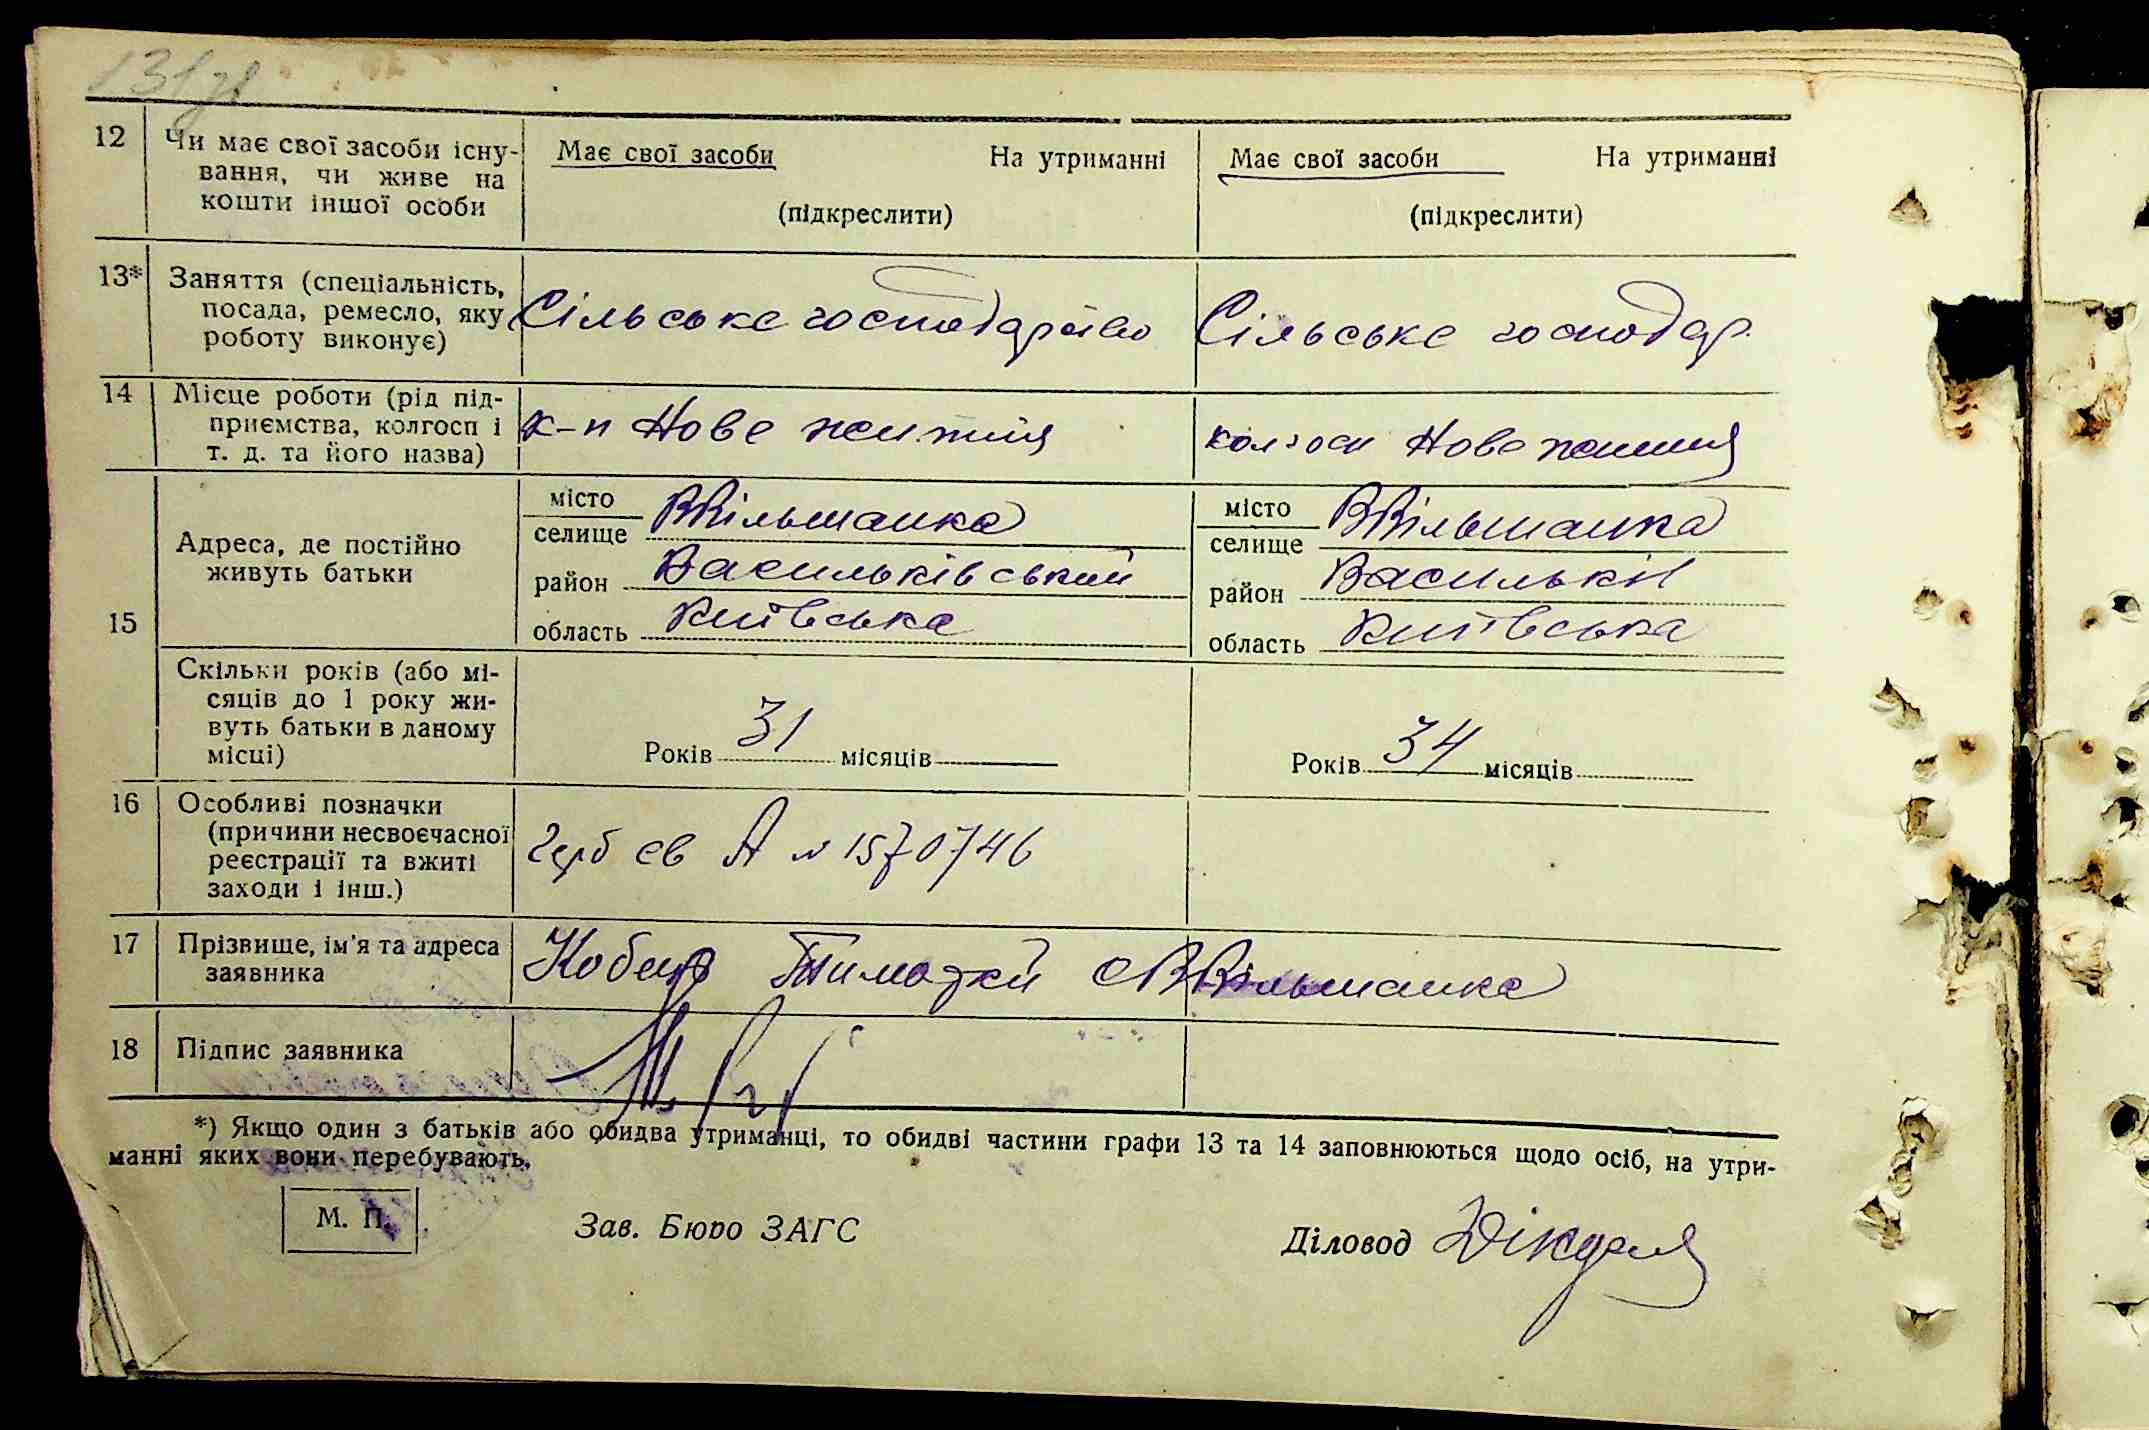 131
12 Чи має свої засоби існу- Має свої засоби На утриманні Має свої засоби На утриманні
вання, чи живе на
кошти іншої особи (підкреслити) (підкреслити)
13* Заняття (спеціальність,
посада, ремесло, яку Сільське господарство Сільське господар.
роботу виконує)
14 Місце роботи (рід під-
приємства, колгосп і к-п Нове життя колгосп Нове життя
т. д. та його назва)
15 Адреса, де постійно
живуть батьки
місто
селище ВВільшанка
район Васильківський
область Київська
місто
селище ВВільшанка
район Васильків
область Київська
Скільки років (або мі-
сяців до 1 року жи-
вуть батьки в даному
місці)
Років 31 місяців
Років 34 місяців
16 Особливі позначки
(причини несвоєчасної
реєстрації та вжиті
заходи і інш.)
герб св А № 1570746
17 Прізвище, ім'я та адреса
заявника
Тимофій с ВВільшанка
18 Підпис заявника
*) Якщо один з батьків або обидва утриманці, то обидві частини графи 13 та 14 заповнюються щодо осіб, на утри-
манні яких вони перебувають.
М. П. Зав. Бюро ЗАГС Діловод